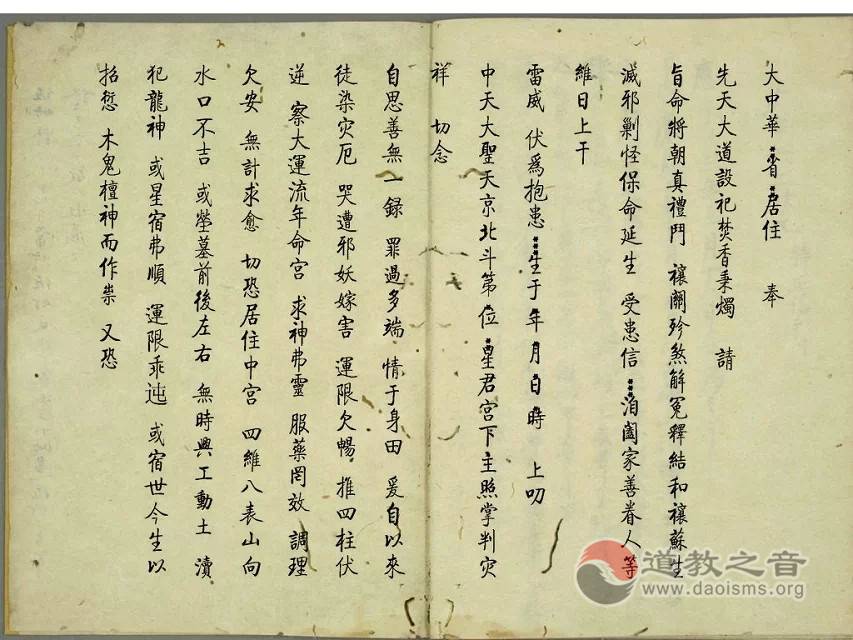 大中華 省 居住 奉
先天大道設祀焚香秉燭 請
旨命將朝真禮鬥 禳關殄煞解冤釋結和禳蘇生
滅邪剿怪保命延生 受患信 洎闔家善眷人等
維日上干
雷威 伏爲抱患 生于 年 月 日 時 上叨
中天大聖天京北斗第 位 星君宮下主照掌判灾
祥 切念
自思善無一錄 罪過多端 情于身田 爰自以來
徒染灾厄 哭遭邪妖嫁害 運限欠暢 推四柱伏
逆 察大運流年命宮 求神弗靈 服藥罔效 調理
欠安 無計求愈 切恐居住中宮 四維八表山向
水口不吉 或塋墓前後左右 無時興工動土 瀆
犯龍神 或星宿弗順 運限乖迍 或宿世今生以
招愆 木鬼檀神而作祟 又恐
道教之音
www.daoisms.org